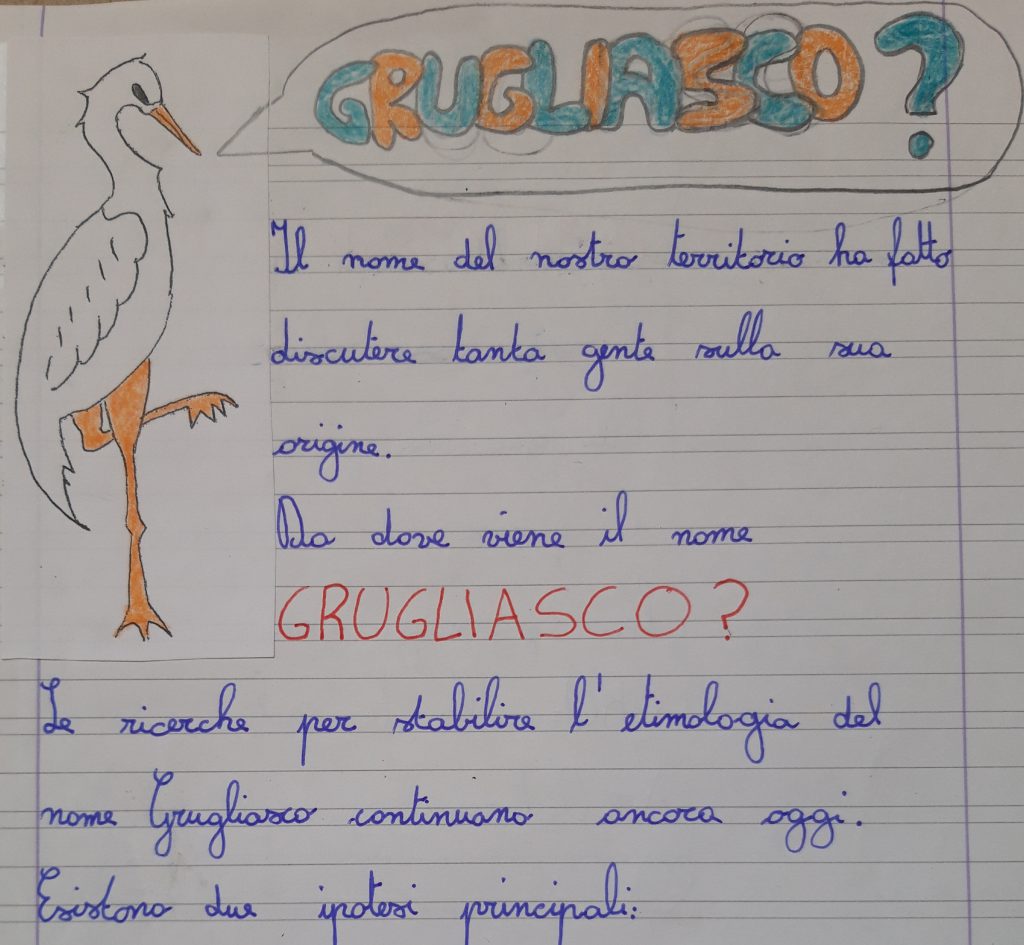 GRUGLIASCO?
Il nome del nostro territorio ha fatto
discutere tanta gente sulla sua
origine.
Da dove viene il nome
GRUGLIASCO?
Le ricerche per stabilire l'etimologia del
nome Grugliasco continuano ancora oggi.
Esistono due ipotesi principali: